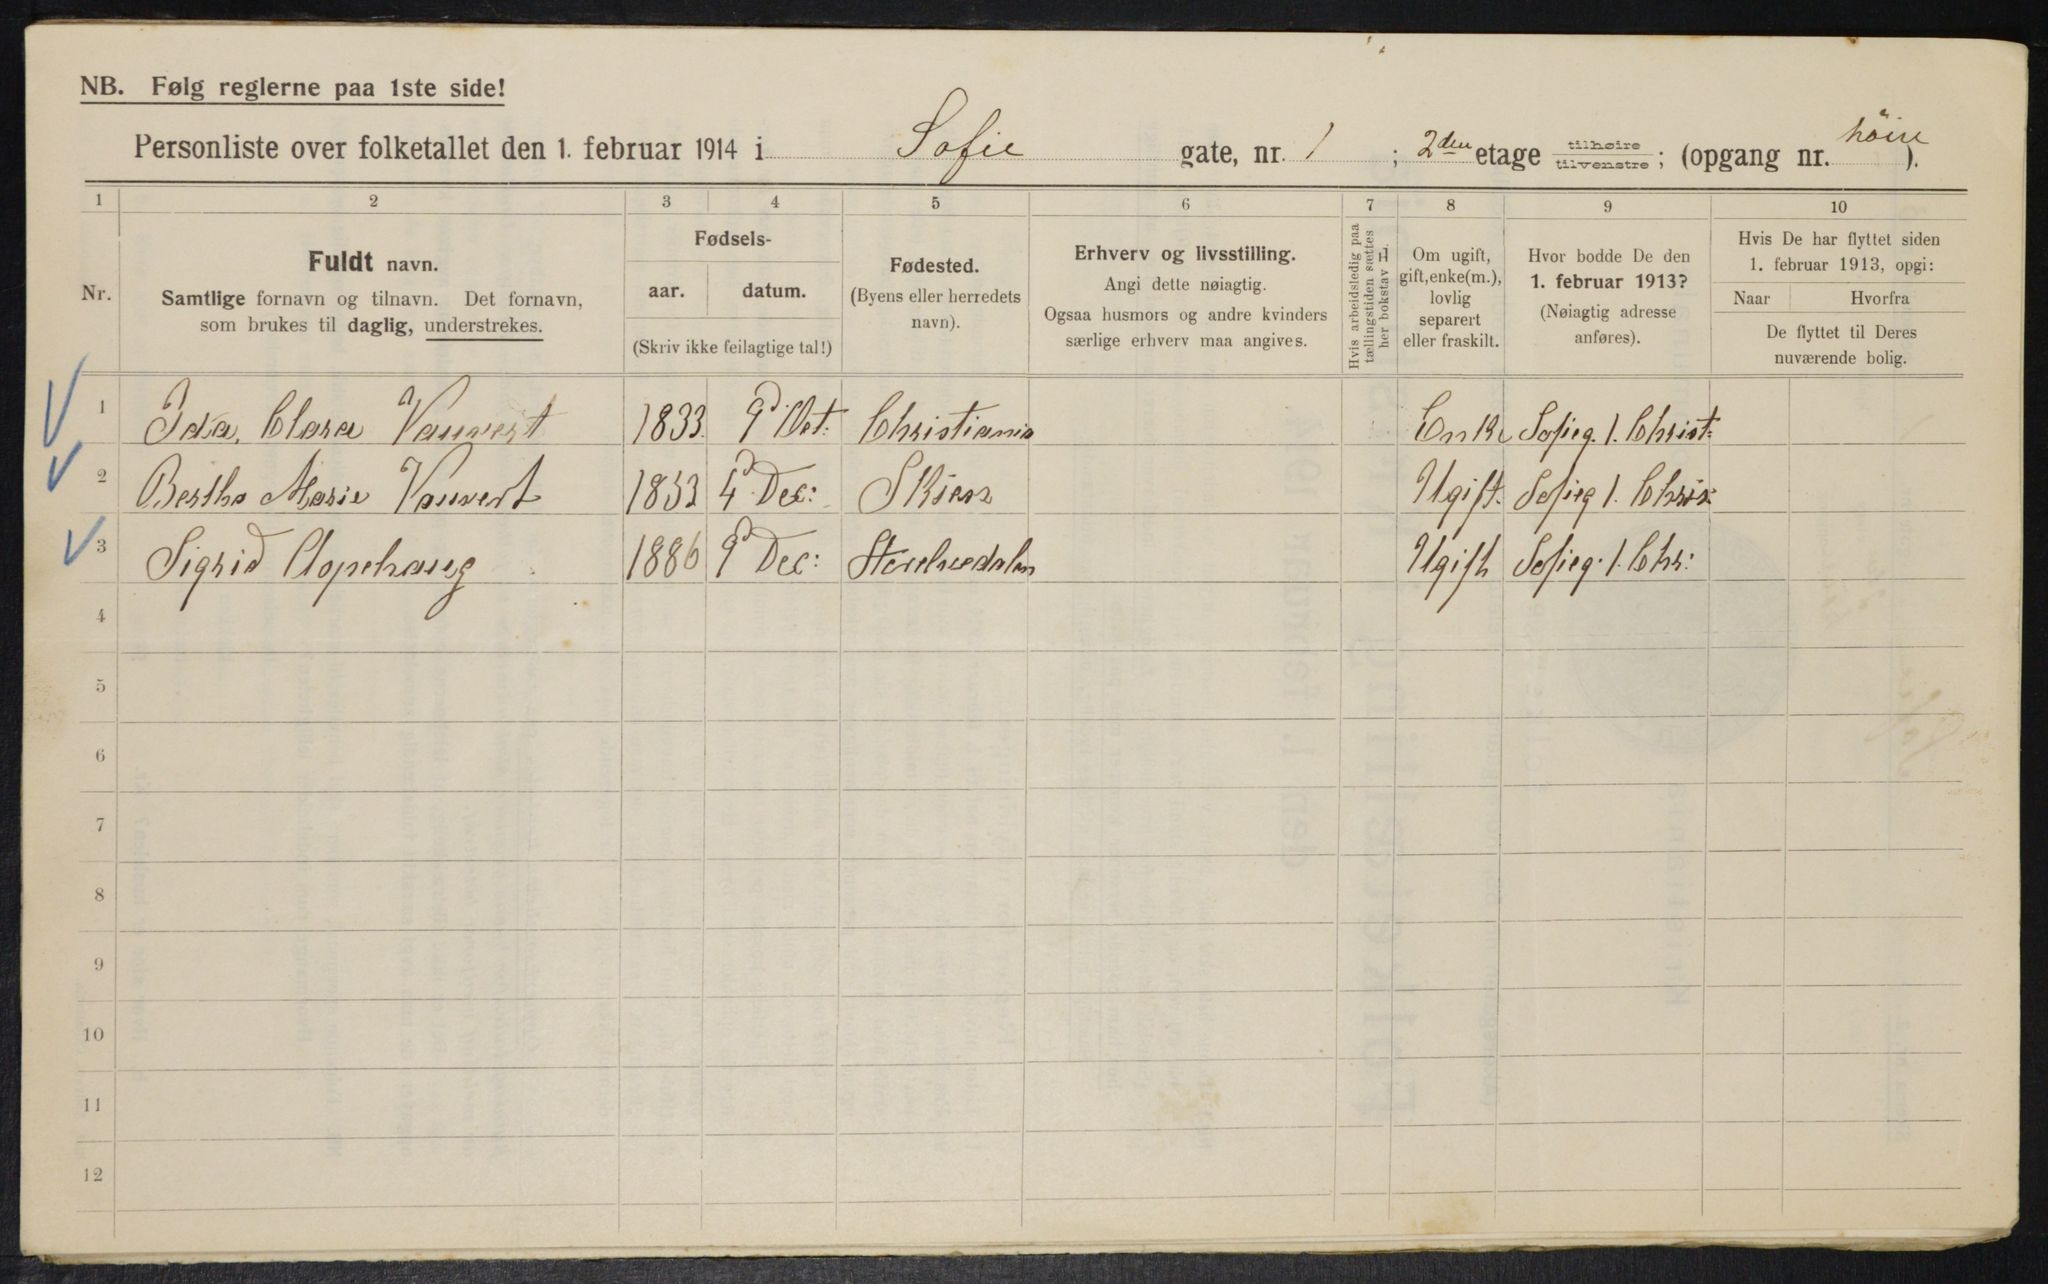 NB. Følg reglerne paa 1ste side!
Personliste over folketallet den 1. februar 1914 i Sofie gate, nr. 1 ; 2den etage tilhøire tilvenstre ; (opgang nr. höire ).
1 2 3 4 5 6 7 8 9 10
Nr.
Fuldt navn.
Samtlige fornavn og tilnavn. Det fornavn,
som brukes til daglig, understrekes.
Fødsels-
aar. datum.
(Skriv ikke feilagtige tal!)
Fødested.
(Byens eller herredets
navn).
Erhverv og livsstilling.
Angi dette nøiagtig.
Ogsaa husmors og andre kvinders
særlige erhverv maa angives.
Hvis arbeidsledig paa
tællingstiden sættes
her bokstav L.
Om ugift,
gift, enke(m.),
lovlig
separert
eller fraskilt.
Hvor bodde De den
1. februar 1913?
(Nøiagtig adresse
anføres).
Hvis De har flyttet siden
1. februar 1913, opgi:
Naar Hvorfra
De flyttet til Deres
nuværende bolig.
1 Ida, Clara Vauvert 1833. 9d Oct: Christiania Enke Sofieg. 1. Christ:
2 Bertha Marie Vauvert 1853 4d Dec: Skien Ugift. Sofieg 1. Chris:
3 Sigrid 1886 9d Dec: Ugift Sofieg. 1. Chr:
4
5
6
7
8
9
10
11
12